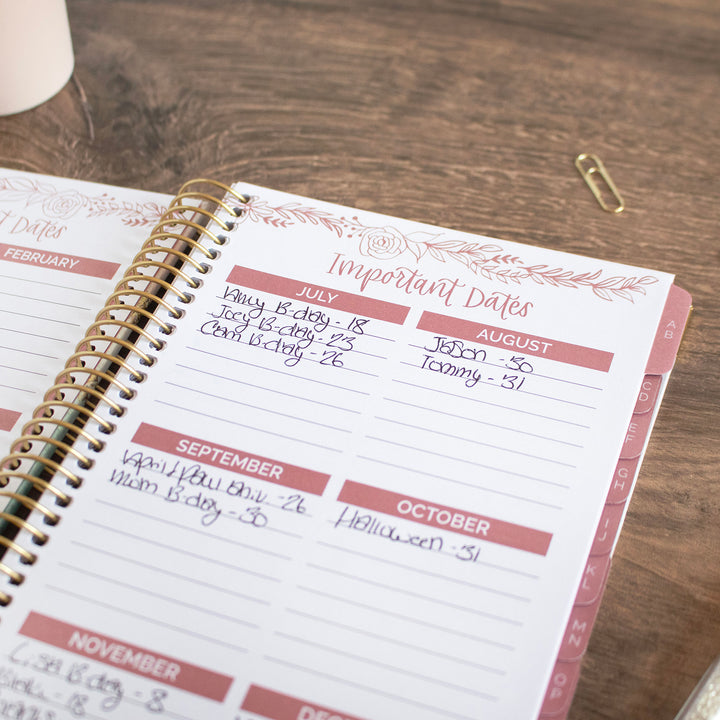 Dates
FEBRUARY
Important Dates
JULY
B-day - 18
Joey B-day - 23
Cam B-day - 26
AUGUST
Jason - 30
Tommy - 31
SEPTEMBER
April & Paul Aniv. - 26
Mom B-day - 30
OCTOBER
Halloween - 31
NOVEMBER
Lisa B-day - 8
- 8
A B
C D
E F
G H
I J
K L
M N
O P